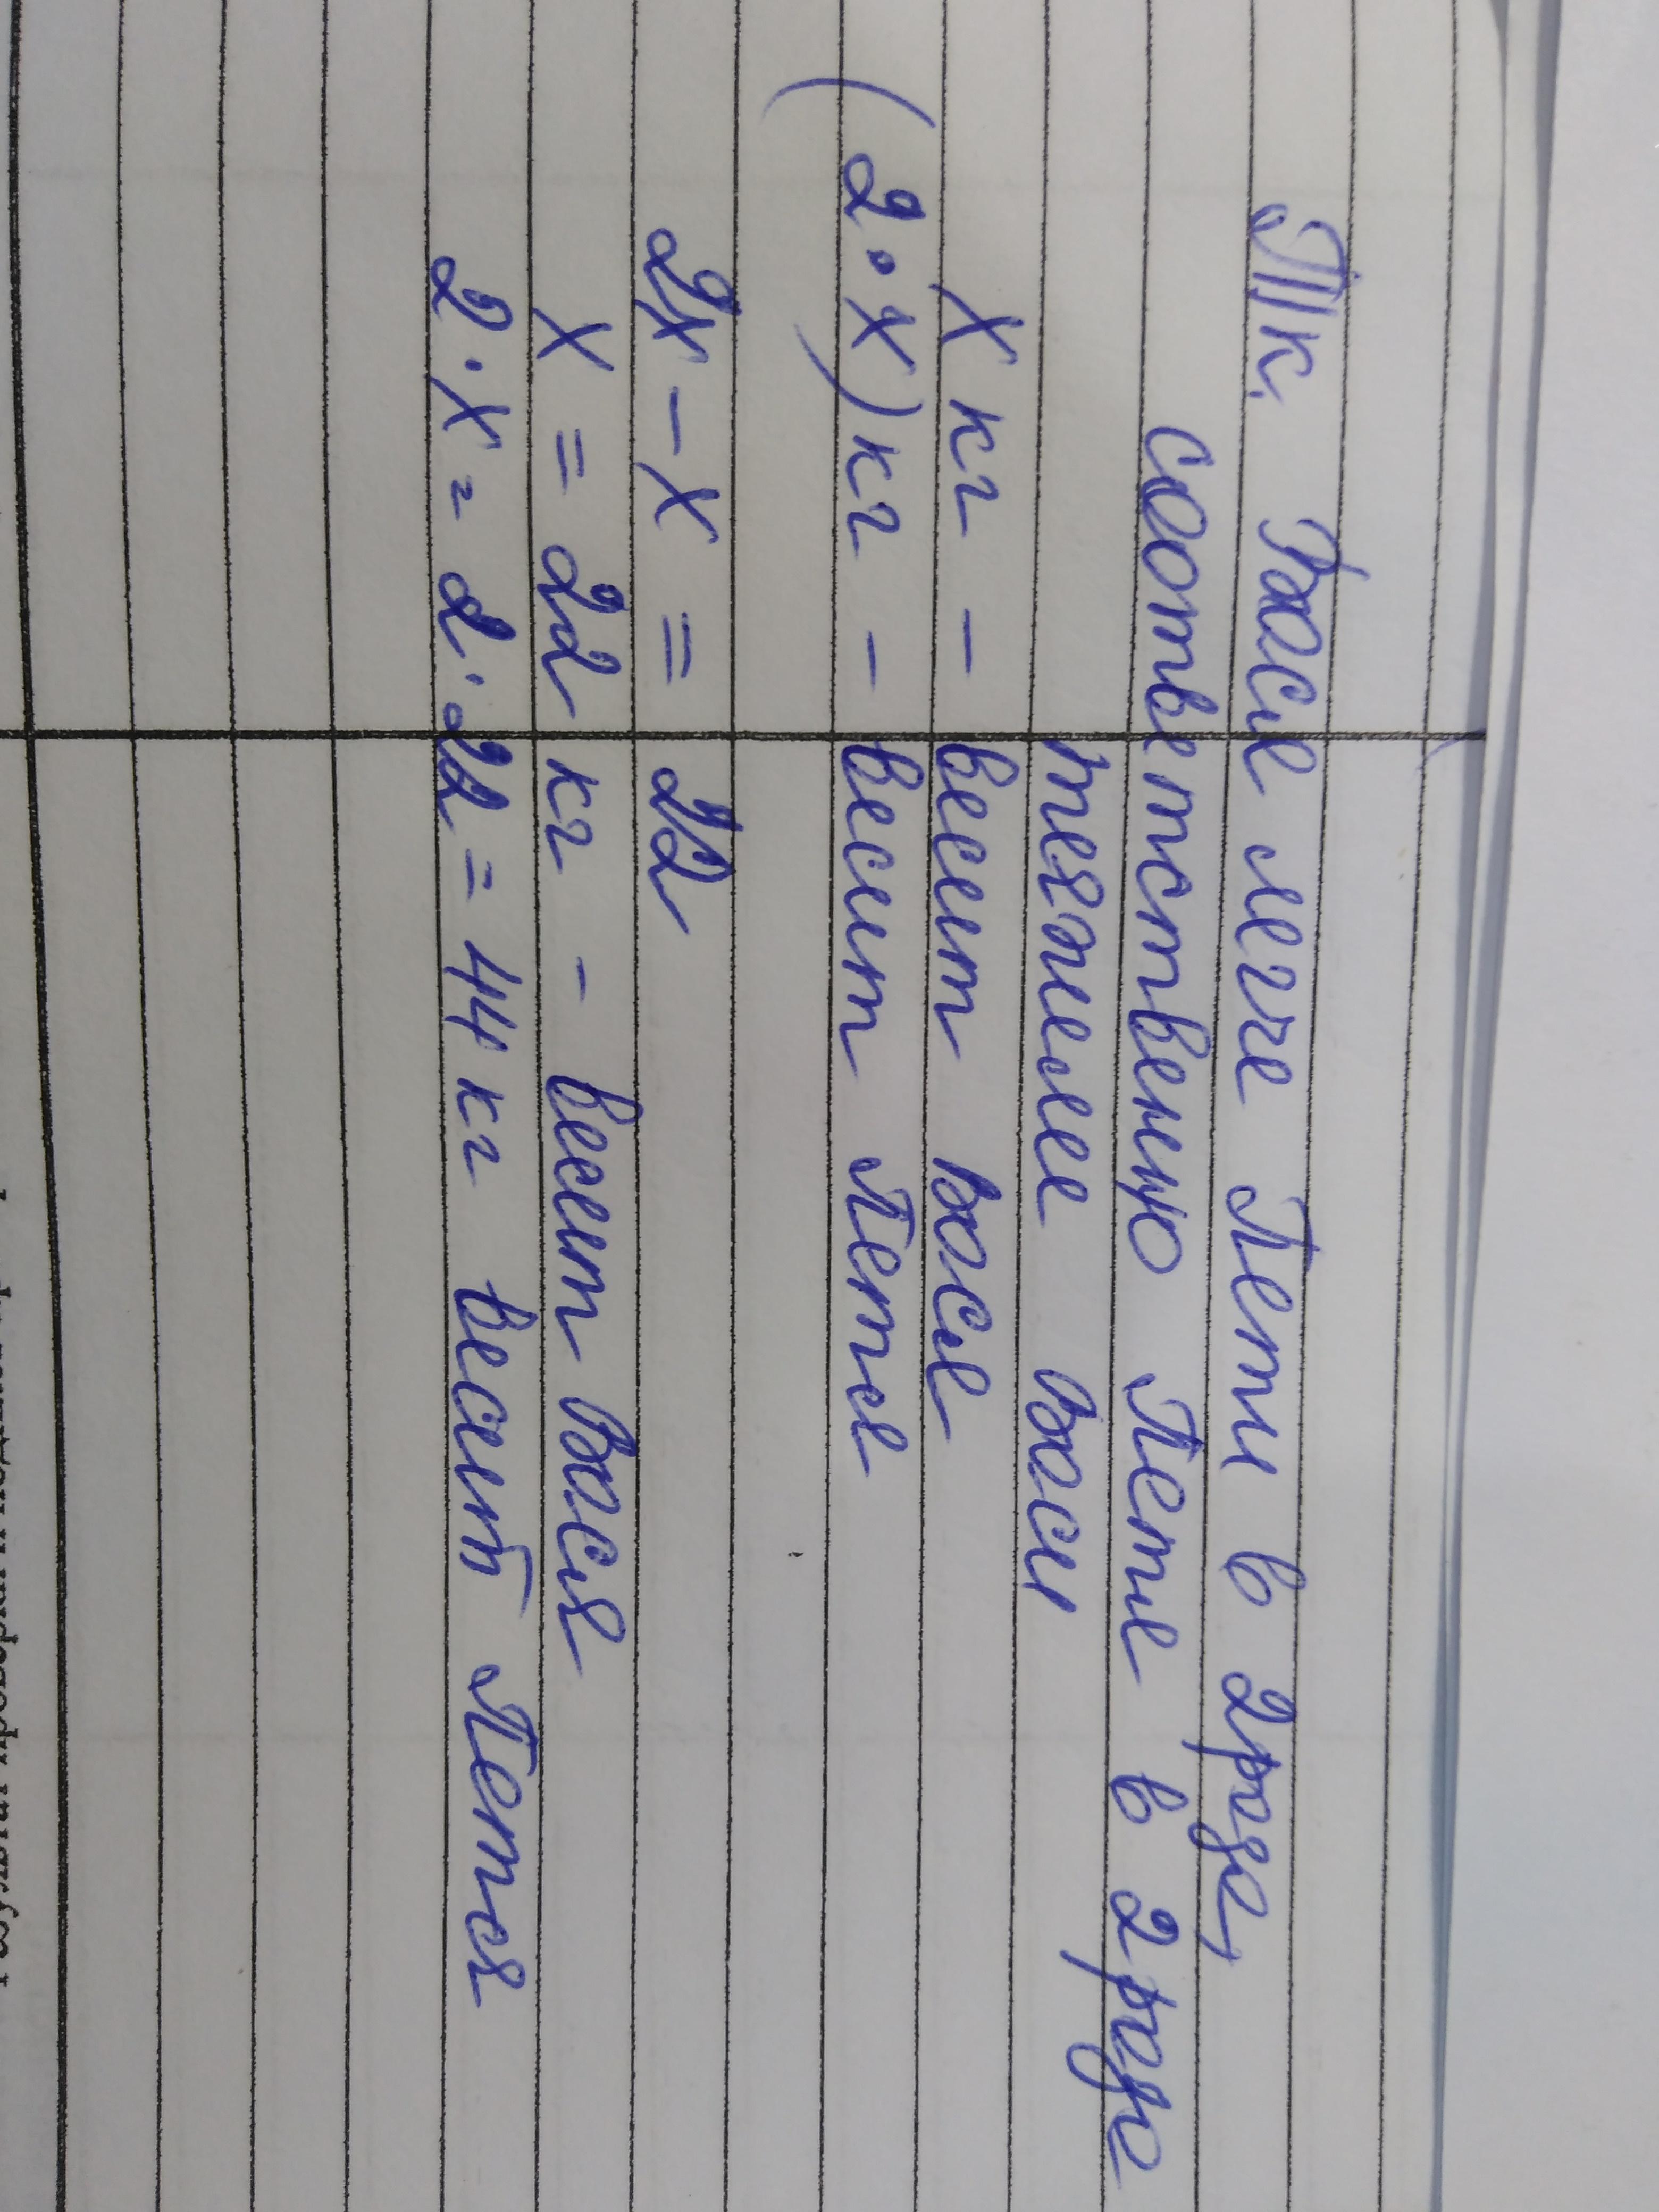 Тк. Вася легче Пети в 2 раза,
соответственую Петя в 2 раза
тяжелее Васи
X кг - весит Вася
(2·X) кг - весит Петя
2X - X = 22
X = 22 кг - весит Вася
2·X = 2·22 = 44 кг весит Петя